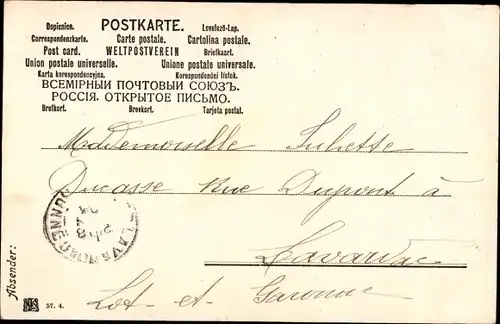 POSTKARTE.
Dopisnice. Levelező-Lap.
Correspondenzkarte. Carte postale. Cartolina postale.
Post card. WELTPOSTVEREIN Briefkaart.
Union postale universelle. Unione postale universale.
Karta korespondencyjna. Korespondenční lístek.
ВСЕМІРНЫЙ ПОЧТОВЫЙ СОЮЗЪ.
РОССІЯ. ОТКРЫТОЕ ПИСЬМО.
Brefkort. Brevkort. Tarjeta postal.
Mademoiselle Juliette
Ducasse Rue Dupont à
Lavardac
Lot-et-Garonne
Absender:
57. 4.